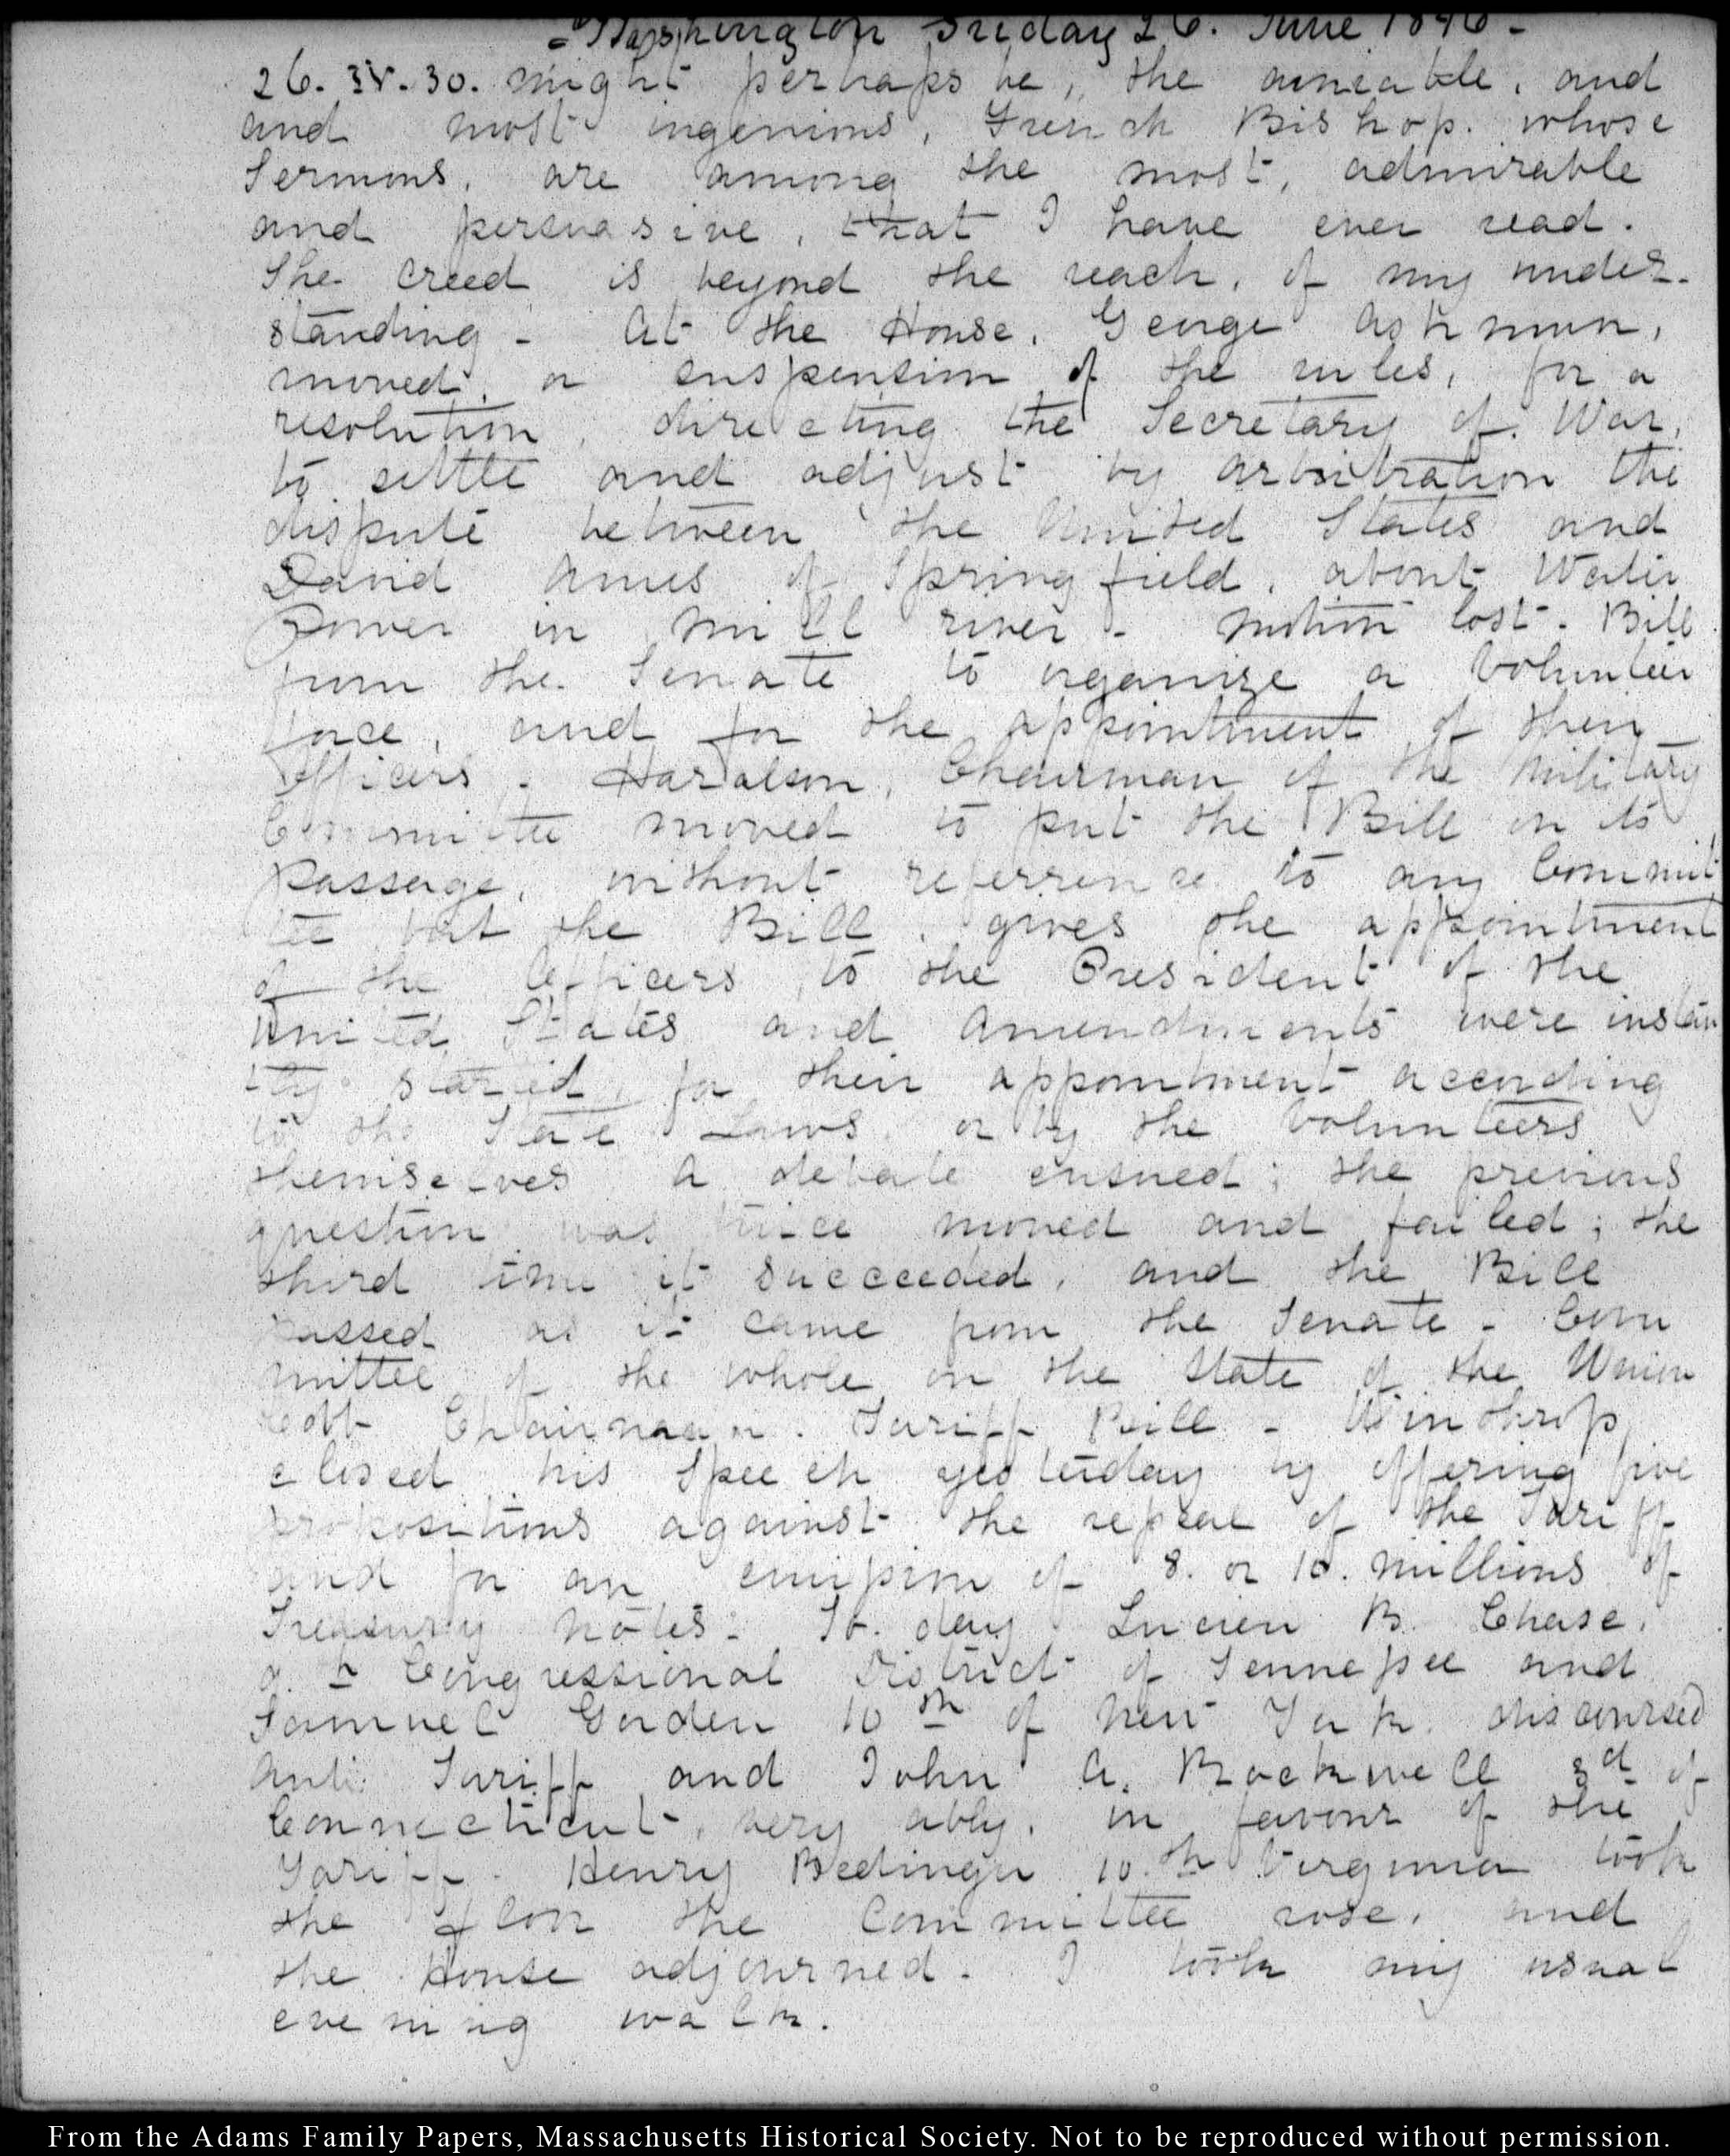 - Washington Friday 26. June 1846 -
26. IV. 30. might perhaps be, the amiable, and
and most ingenious, French Bishop. whose
Sermons, are among the most, admirable
and persuasive, that I have ever read.
The creed is beyond the reach, of my under-
standing - At the House, George Ashmun,
moved, a suspension of the rules, for a
resolution, directing the Secretary of War,
to settle and adjust by arbitration the
dispute between the United States and
David Ames of Springfield, about Water
Power in Mill river - motion lost - Bill
from the Senate to organize a Volunteer
force, and for the appointment of their
Officers - Haralson, Chairman of the Military
Committee moved to put the Bill on its
passage, without referrence to any Commit
tee but the Bill, gives the appointment
of the Officers to the President of the
United States and amendments were instan
tly started, for their appointment according
to the State Laws, or by the Volunteers
themselves A debate ensued; the previous
question was twice moved and failed; the
third time it succeeded, and the Bill
passed as it came from the Senate - Com
mittee of the whole on the state of the Union
Cobb Chairman. Tariff Bill - Winthrop
closed his Speech yesterday by offering five
propositions against the repeal of the Tariff
and for an emission of 8. or 10. millions of
Treasury notes - To. day Lucien B. Chase.
9.th Congressional District of Tennessee and
Samuel Gordon 10th of New York. discoursed
Anti Tariff and John A. Rockwell 3d of
Connecticut, very ably, in favour of the
Tariff - Henry Bedinger 10.th Virginia took
the floor the Committee rose, and
the House adjourned. I took my usual
evening walk.
From the Adams Family Papers, Massachusetts Historical Society. Not to be reproduced without permission.